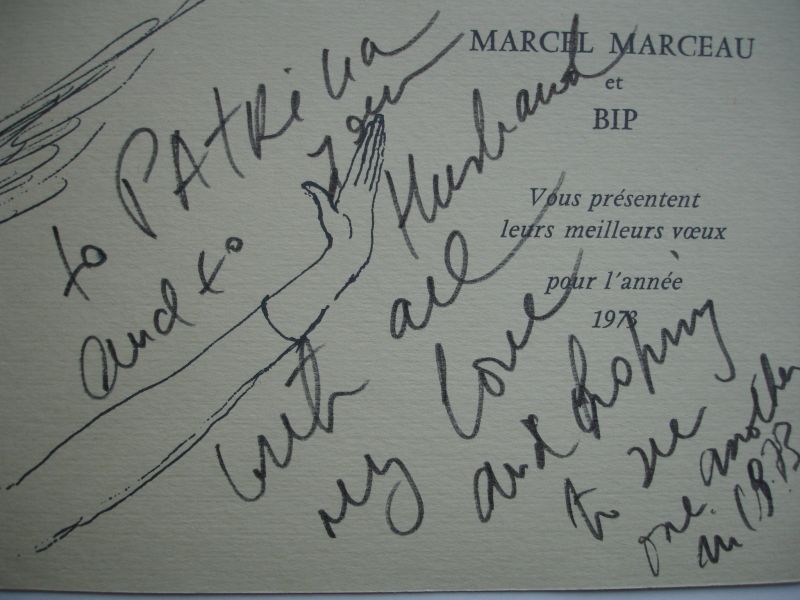 MARCEL MARCEAU
et
BIP
Vous présentent
leurs meilleurs vœux
pour l'année
1973
to PATRICIA
and to your Husband
with all
my love
and hoping
to see
one another
in 1973